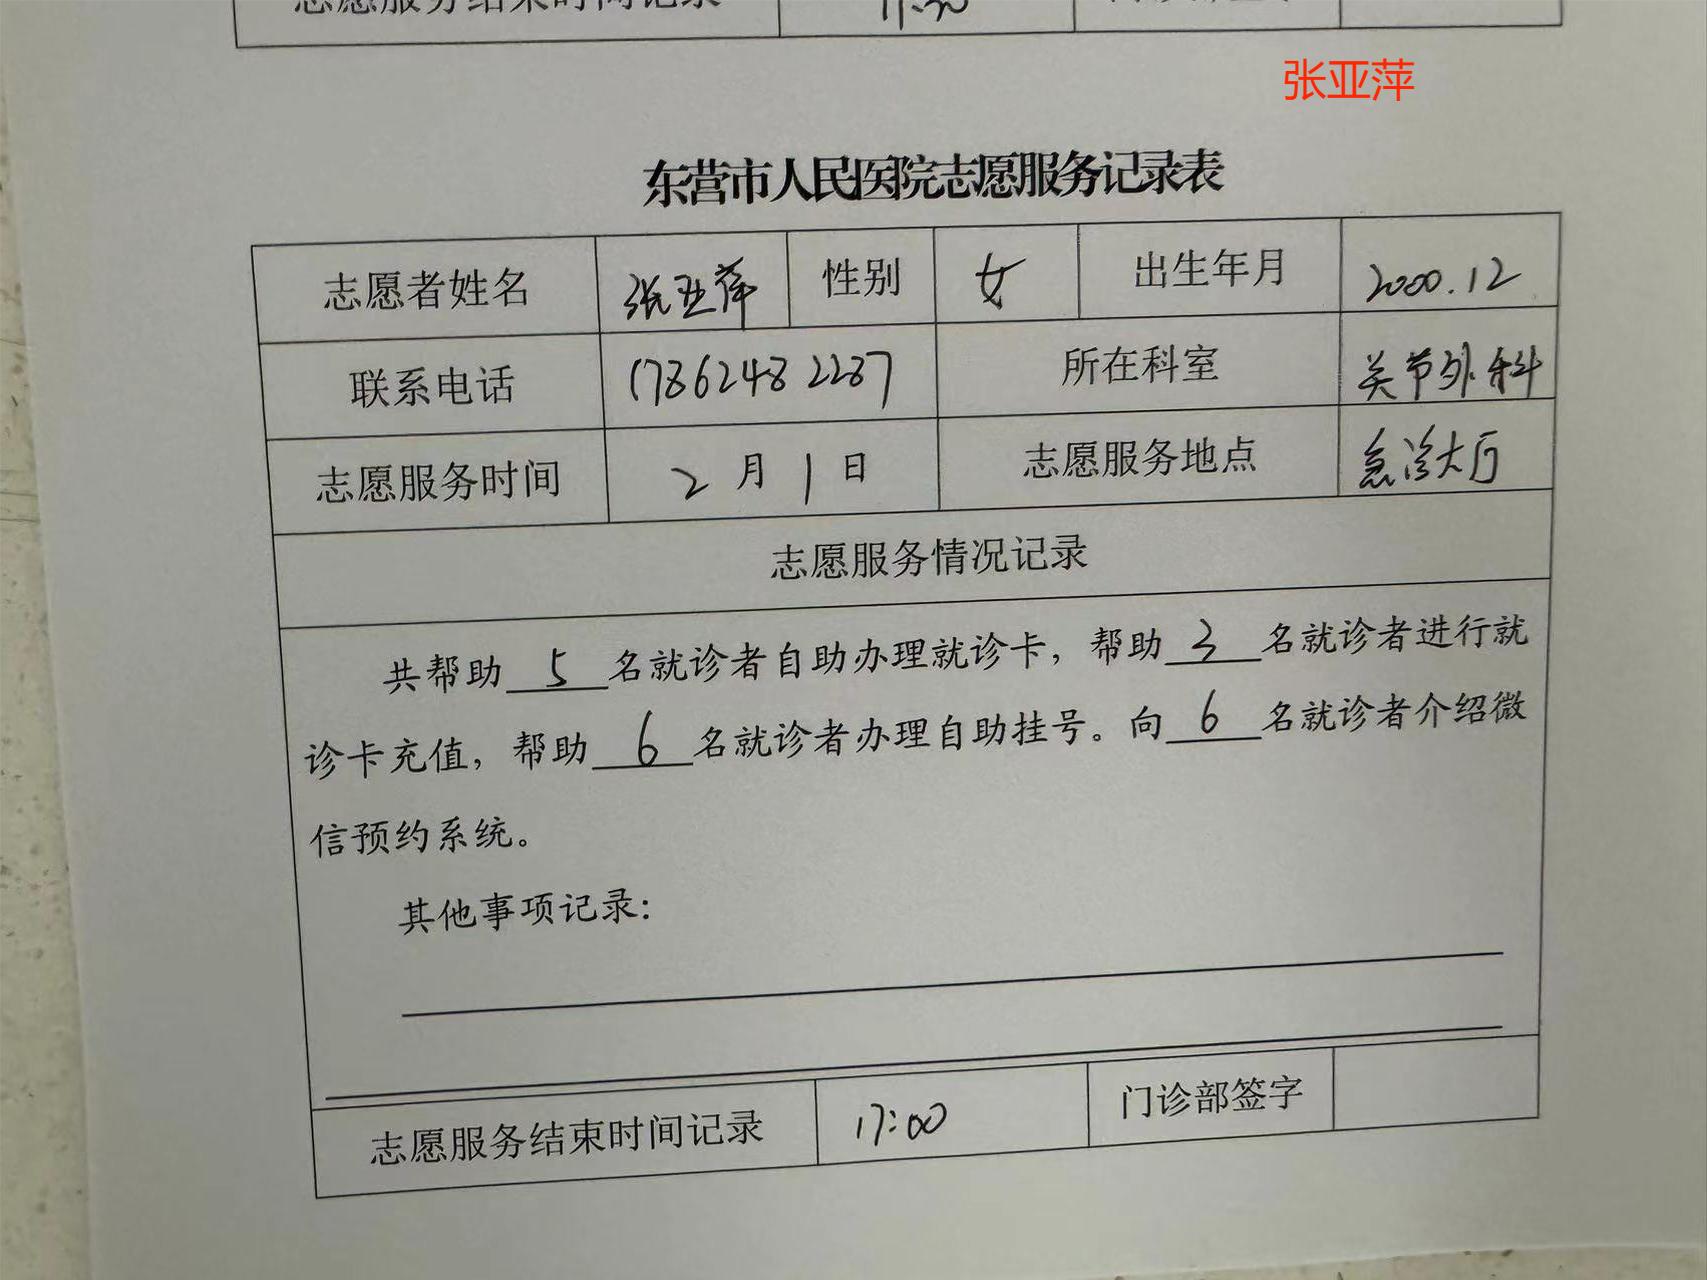 志愿服务结束时间记录 17:30
张亚萍
东营市人民医院志愿服务记录表
志愿者姓名 张亚萍 性别 女 出生年月 2000.12
联系电话 17862482287 所在科室 关节外科
志愿服务时间 2月1日 志愿服务地点 急诊大厅
志愿服务情况记录
共帮助 5 名就诊者自助办理就诊卡，帮助 3 名就诊者进行就
诊卡充值，帮助 6 名就诊者办理自助挂号。向 6 名就诊者介绍微
信预约系统。
其他事项记录：
志愿服务结束时间记录 17:00 门诊部签字